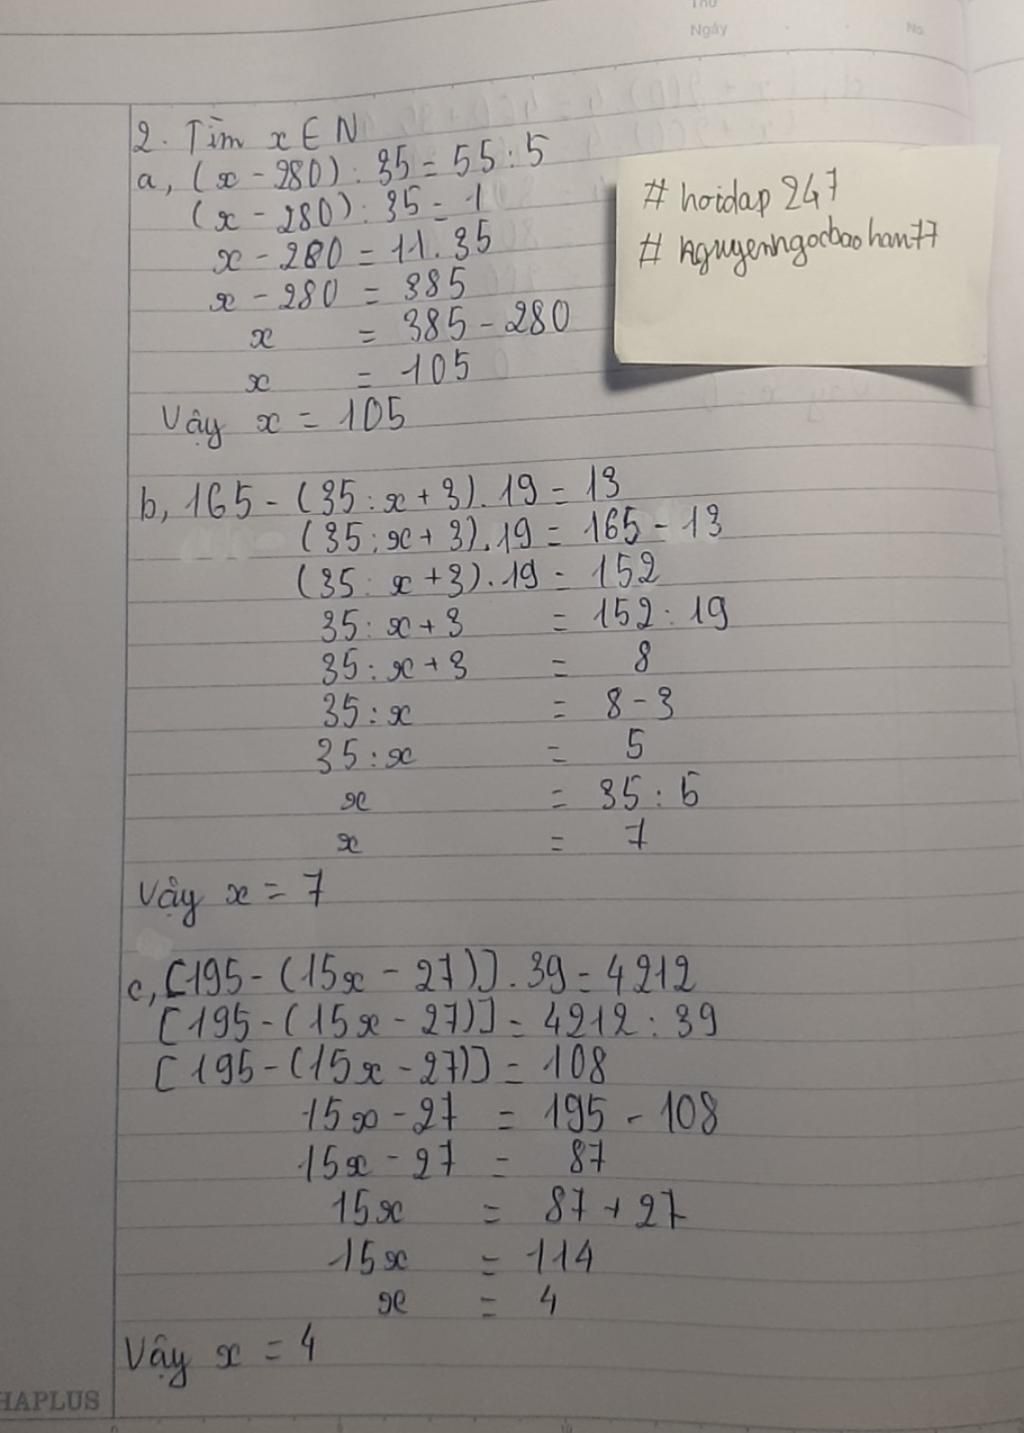 Thứ
Ngày No.
2. Tìm x ∈ N
a, (x - 280) : 35 = 55 : 5
(x - 280) : 35 = 1
x - 280 = 11.35
x - 280 = 385
x = 385 - 280
x = 105
Vậy x = 105
# hoidap 247
# nguyenngocbaohan77
b, 165 - (35 : x + 3) . 19 = 13
(35 : x + 3) . 19 = 165 - 13
(35 : x + 3) . 19 = 152
35 : x + 3 = 152 : 19
35 : x + 3 = 8
35 : x = 8 - 3
35 : x = 5
x = 35 : 5
x = 7
Vậy x = 7
c, [195 - (15x - 27)] . 39 = 4212
[195 - (15x - 27)] = 4212 : 39
[195 - (15x - 27)] = 108
15x - 27 = 195 - 108
15x - 27 = 87
15x = 87 + 27
15x = 114
x = 4
Vậy x = 4
HAPLUS